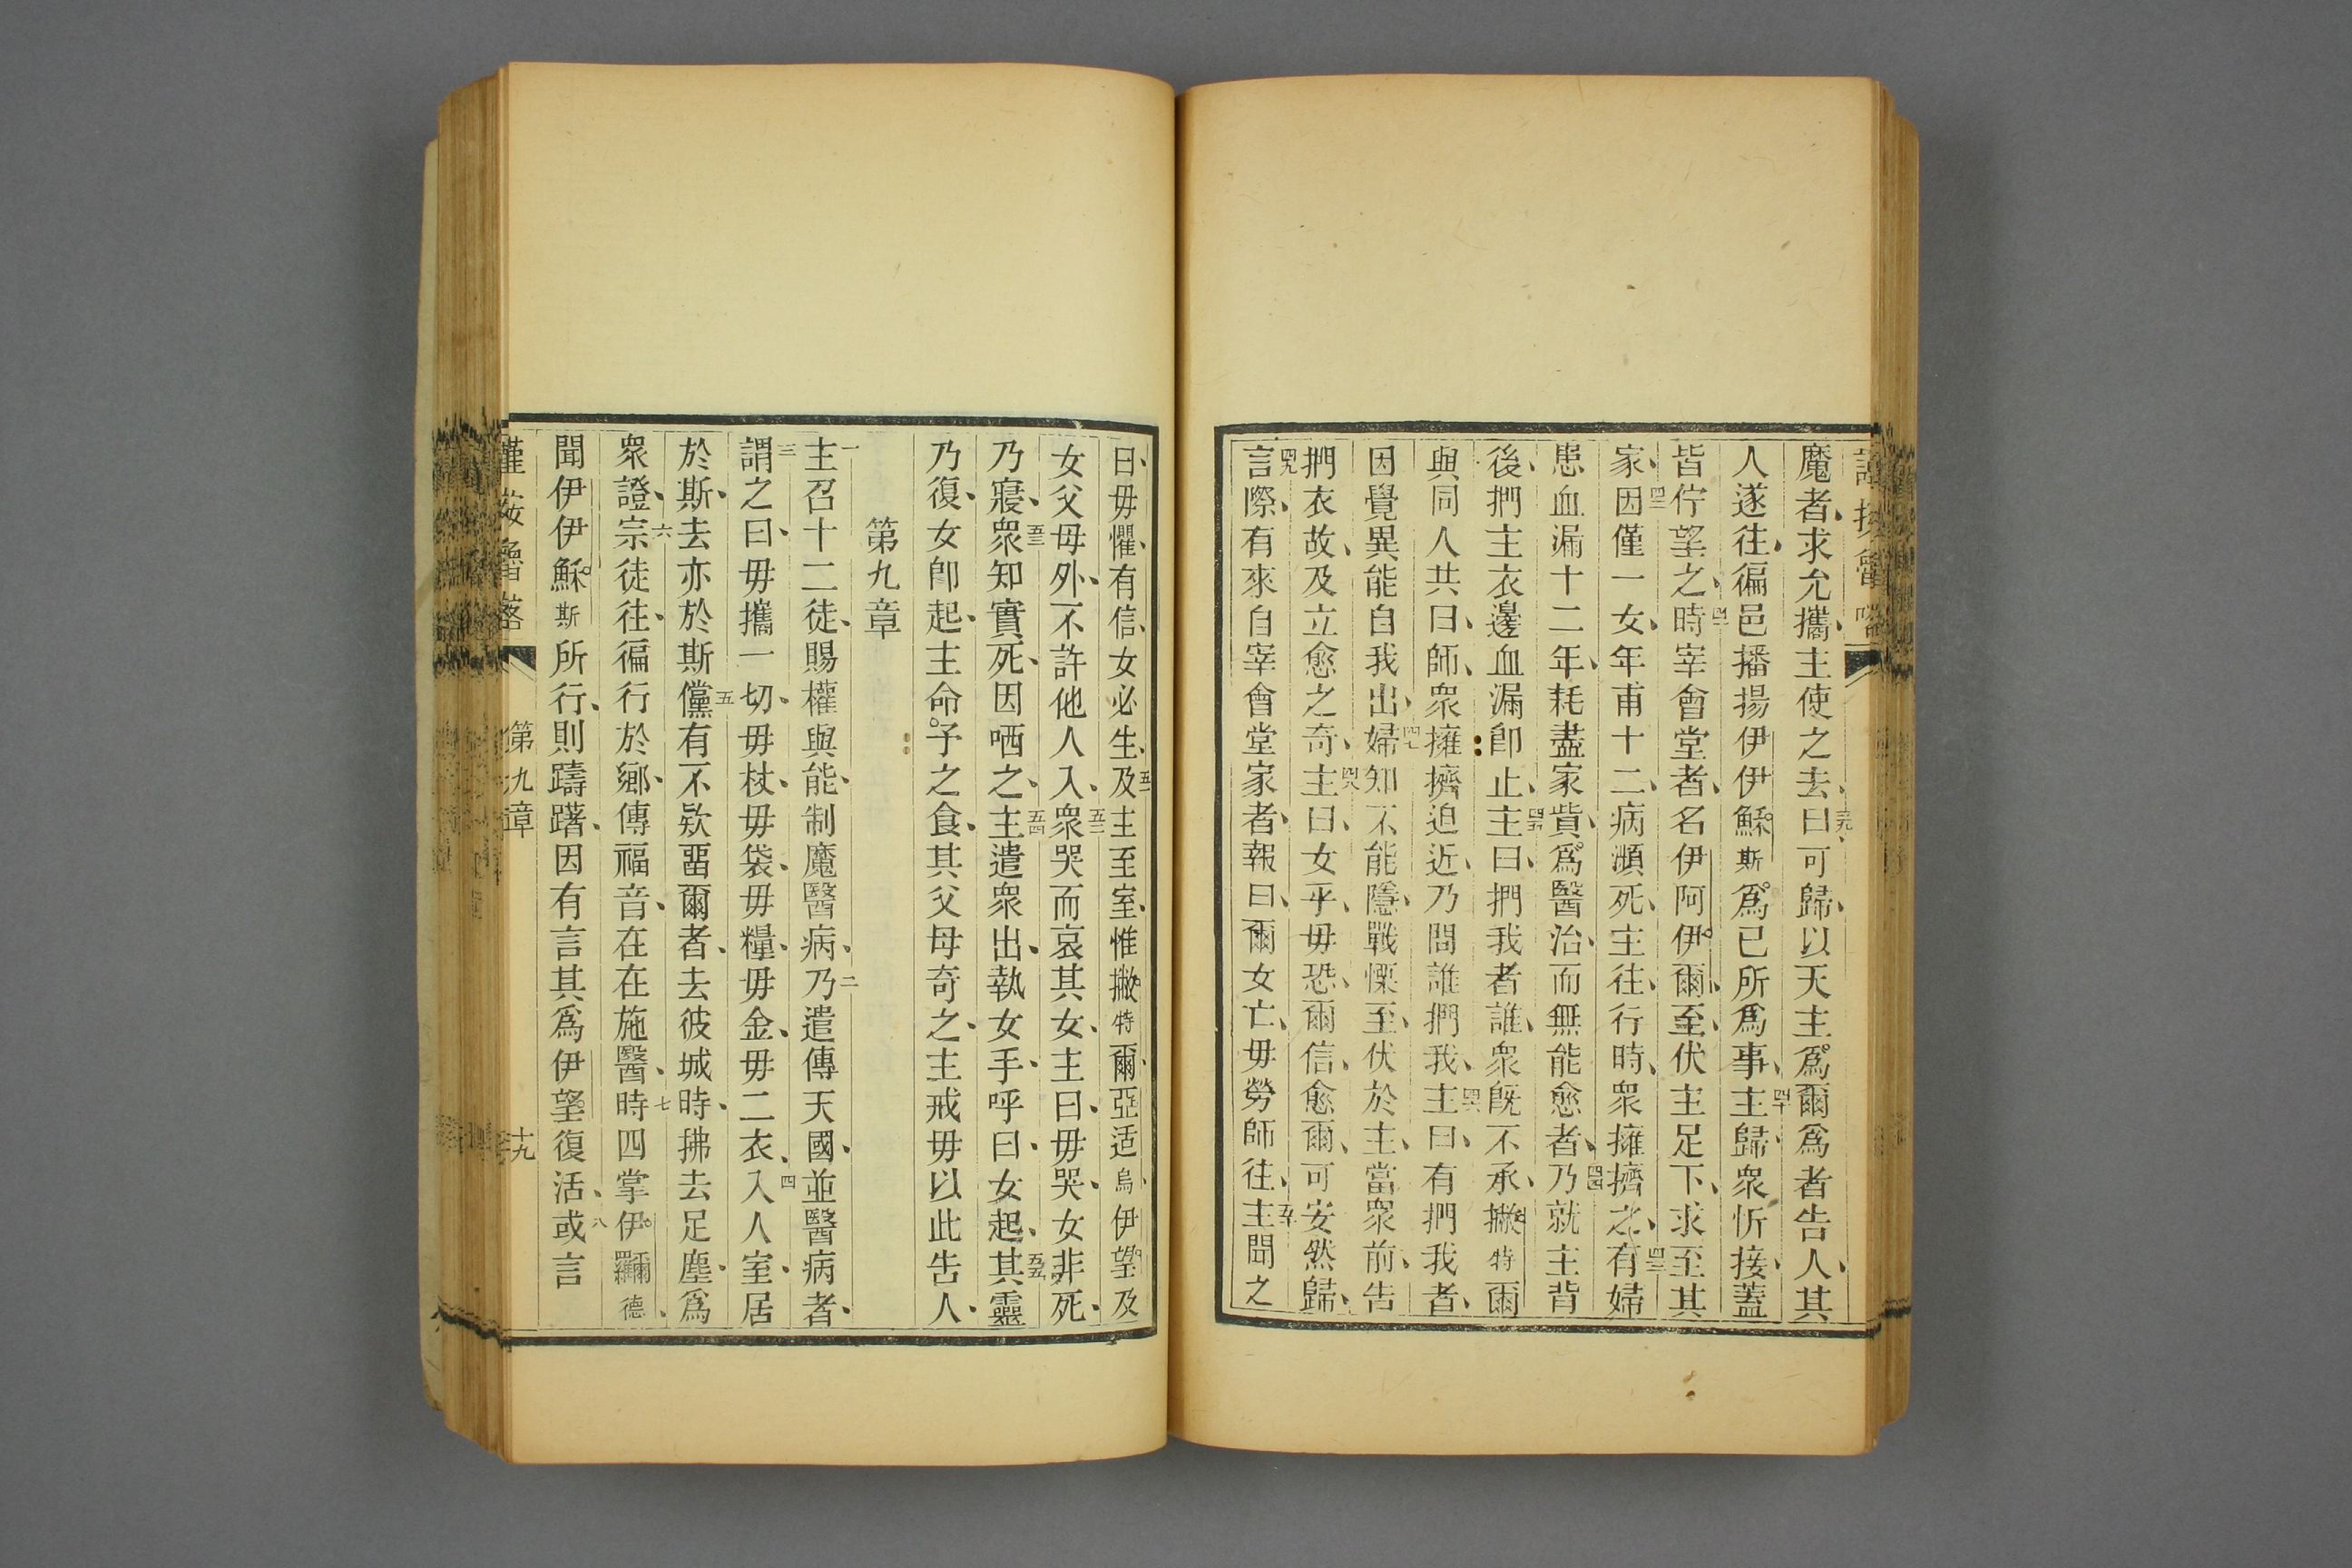 魔者、求允攜主使之去、三九曰、可歸、以天主爲爾爲者告人、其
人遂往、徧邑播揚伊伊穌斯爲己所爲事、四十主歸、衆忻接、蓋
皆佇望之、四一時宰會堂者、名伊阿伊爾、至、伏主足下、求至其
家、四二因僅一女、年甫十二、病瀕死、主往行時、衆擁擠之、四三有婦
患血漏十二年、耗盡家貲、爲醫治、而無能愈者、四四乃就主背
後、捫主衣邊、血漏卽止、四五主曰、捫我者誰、衆既不承、撇特爾
與同人共曰、師、衆擁擠迫近、乃問誰捫我、四六主曰、有捫我者、
因覺異能自我出、四七婦知不能隱、戰慄至、伏於主、當衆前、告
捫衣故、及立愈之奇、四八主曰、女乎、毋恐、爾信愈爾、可安然歸、
四九言際、有來自宰會堂家者、報曰、爾女亡、毋勞師往、五十主聞之
曰、毋懼、有信、女必生、五一及主至室、惟撇特爾、亞适烏、伊望、及
女父母外、不許他人入、五二衆哭而哀其女、主曰、毋哭、女非死、
乃寢、五三衆知實死、因哂之、五四主遣衆出、執女手、呼曰、女起、五五其靈
乃復、女卽起、主命予之食、其父母奇之、主戒毋以此告人、
第九章
一主召十二徒、賜權與能、制魔醫病、二乃遣傳天國、並醫病者、
三謂之曰、毋攜一切、毋杖、毋袋、毋糧、毋金、毋二衣、四入人室、居
於斯、去亦於斯、五儻有不欵畱爾者、去彼城時、拂去足塵、爲
衆證、六宗徒往、徧行於鄉、傳福音、在在施醫、七時四掌伊羅爾德、
聞伊伊穌斯所行、則躊躇、因有言其爲伊望復活、八或言
第九章
十九